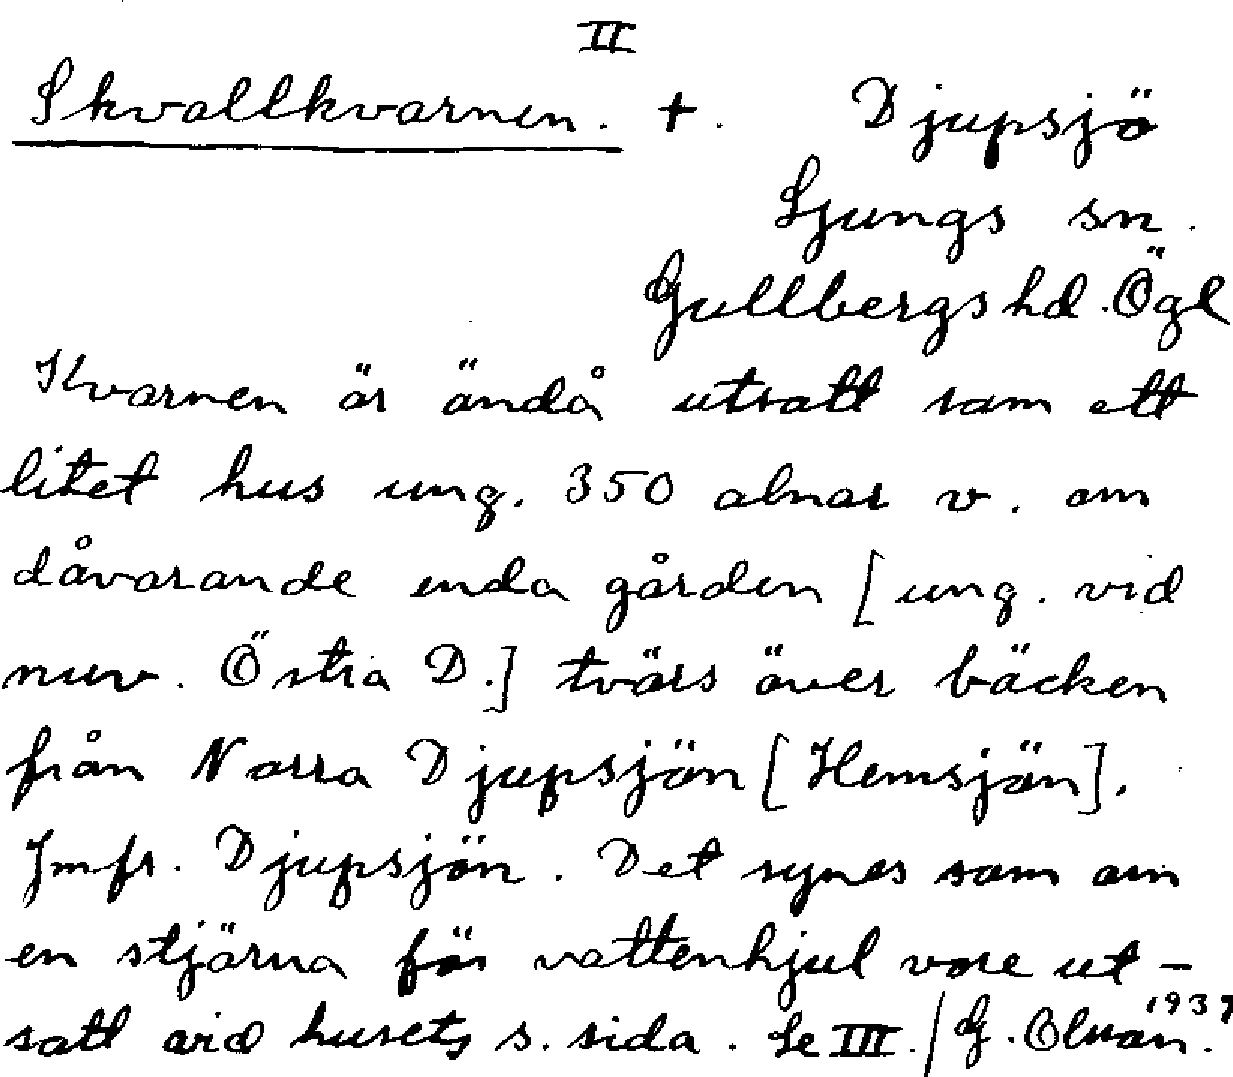 II
Skvallkvarnen. +. Djupsjö
Ljungs sn.
Gullbergs hd. Ögl
Kvarnen är ändå utsatt som ett
litet hus ung. 350 alnar v. om
dåvarande enda gården [ung. vid
nuv. Östra D.] tvärs över bäcken
från Norra Djupsjön [Hemsjön].
Jmfr. Djupsjön. Det synes som om
en stjärna för vattenhjul vore ut-
satt vid husets s. sida. Se III. / G.
1937